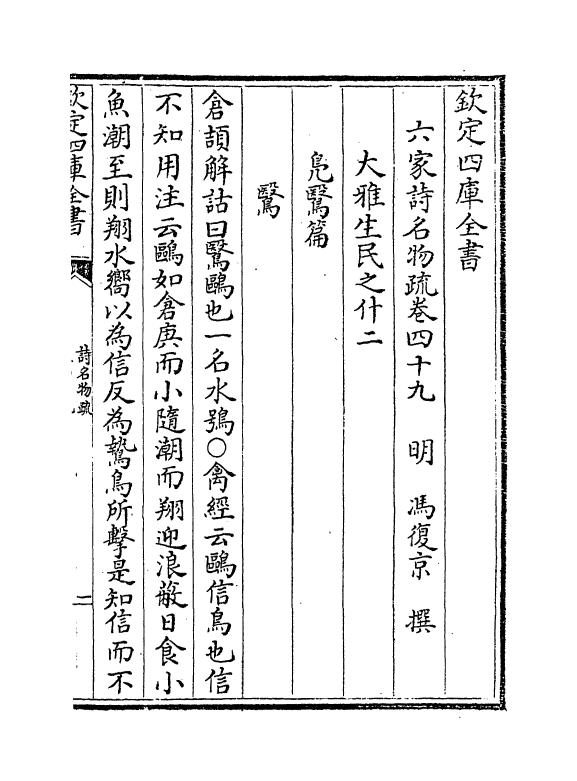 欽定四庫全書
六家詩名物疏卷四十九　明　馮復京　撰
大雅生民之什二
鳬鷖篇
鷖
倉頡解詁曰鷖鷗也一名水鴞○禽經云鷗信鳥也信
不知用注云鷗如倉庚而小隨潮而翔迎浪蔽日食小
魚潮至則翔水嚮以為信反為鷙鳥所擊是知信而不
欽定四庫全書
詩名物疏